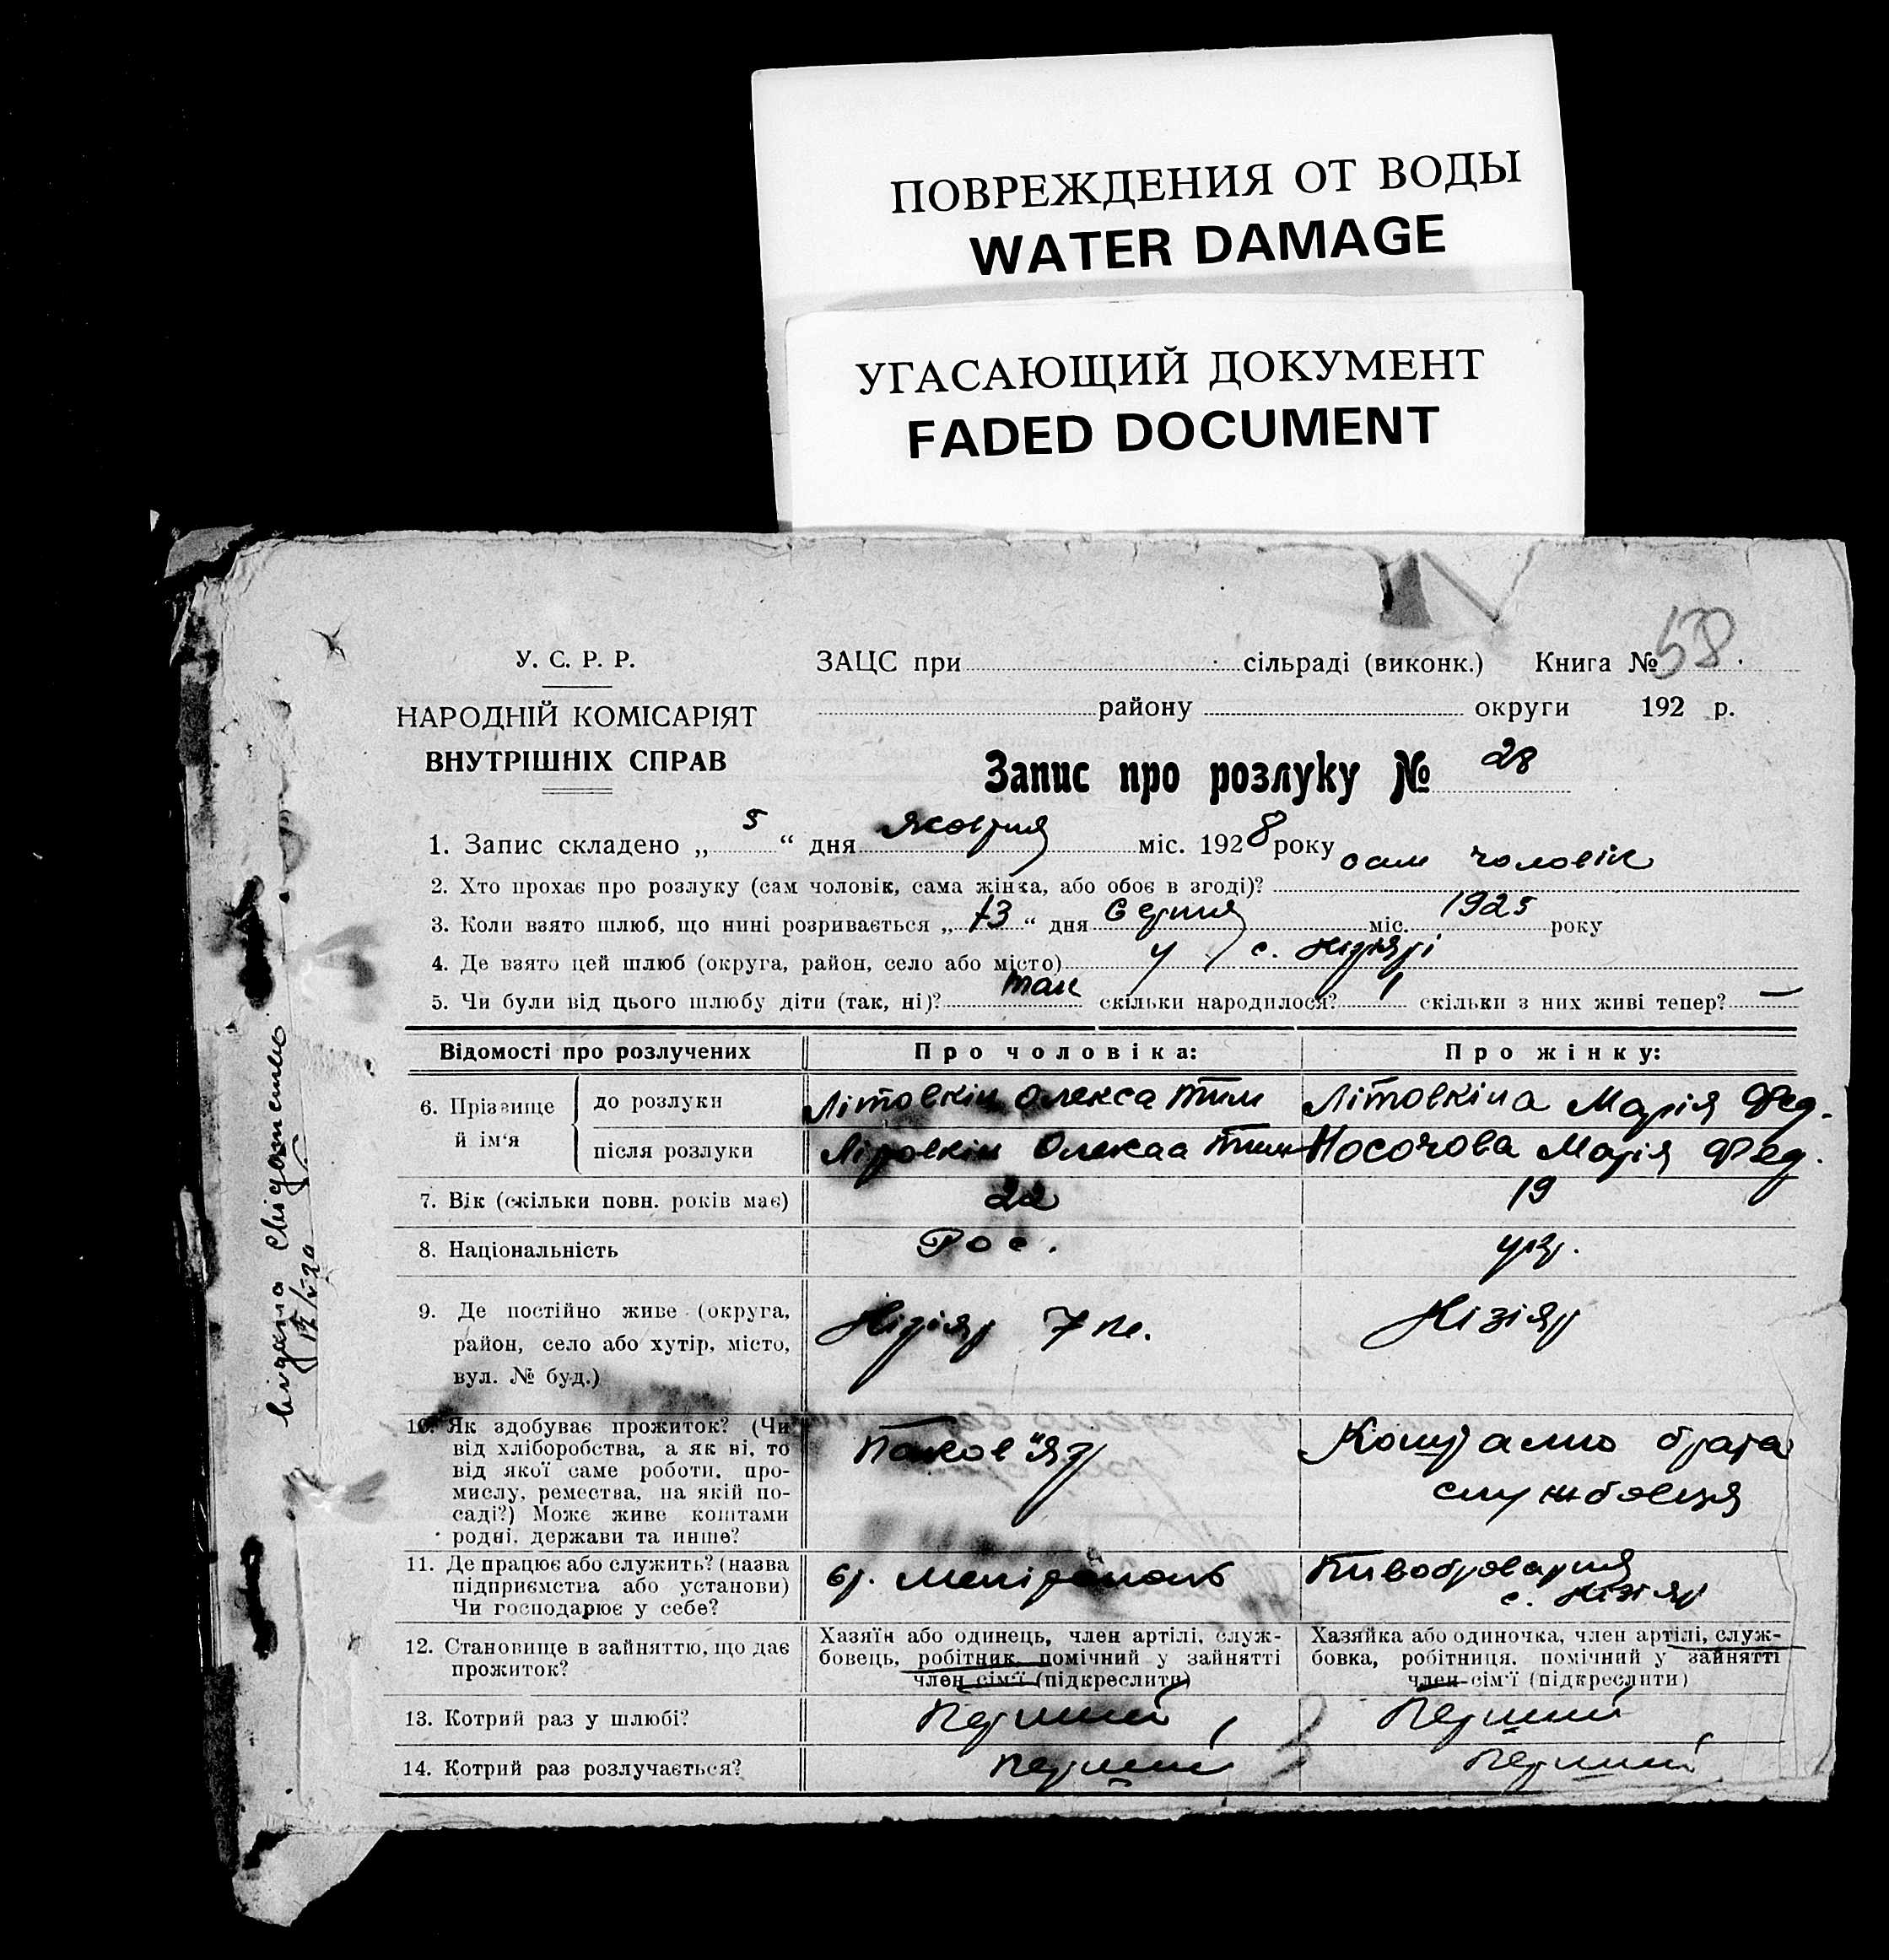 ПОВРЕЖДЕНИЯ ОТ ВОДЫ
WATER DAMAGE
УГАСАЮЩИЙ ДОКУМЕНТ
FADED DOCUMENT
58
У. С. Р. Р.
ЗАЦС при сільраді (виконк.) Книга №
НАРОДНІЙ КОМІСАРІЯТ
ВНУТРІШНІХ СПРАВ
району округи 192 р.
Запис про розлуку № 28
1. Запис складено „ 5 “ дня жовтня міс. 1928 року
2. Хто прохає про розлуку (сам чоловік, сама жінка, або обоє в згоді)? сам чоловік
3. Коли взято шлюб, що нині розривається „ 13 “ дня Серпня міс. 1925 року
4. Де взято цей шлюб (округа, район, село або місто) у с. Нізіярі
5. Чи були від цього шлюбу діти (так, ні)? так скільки народилося? 1 скільки з них живі тепер? —
Відомості про розлучених Про чоловіка: Про жінку:
6. Прізвище й ім'я
до розлуки Літовкін Олекса Тим Літовкіна Марія Фед.
після розлуки Літовкін Олекса Тим Носочова Марія Фед.
7. Вік (скільки повн. років має) 22 19
8. Національність Рос. укр.
9. Де постійно живе (округа, район, село або хутір, місто, вул. № буд.) Нізіяр Нізіяр
10. Як здобуває прожиток? (Чи
від хліборобства, а як ні, то
від якої саме роботи, про-
мислу, ремества, на якій по-
саді?) Може живе коштами
родні, держави та инше?
Коштами брата
службовця
11. Де працює або служить? (назва
підприємства або установи)
Чи господарює у себе?
ст. Мелітополь
Пивоброварня
с. Нізіяр
12. Становище в зайняттю, що дає
прожиток?
Хазяїн або одинець, член артілі, служ-
бовець, робітник, помічний у зайнятті
член сім'ї (підкреслити)
Хазяйка або одиночка, член артілі, служ-
бовка, робітниця, помічний у зайнятті
член сім'ї (підкреслити)
13. Котрий раз у шлюбі? Перший Перший
14. Котрий раз розлучається? перший перший